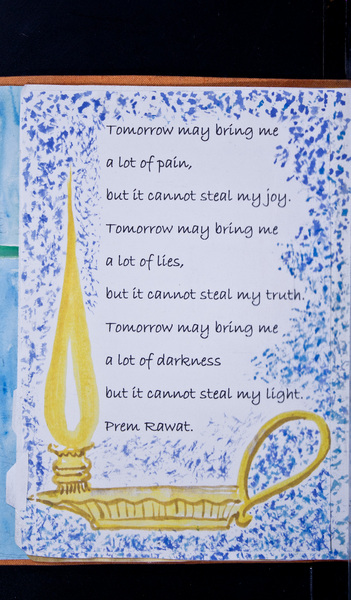 Tomorrow may bring me
a lot of pain,
but it cannot steal my joy.
Tomorrow may bring me
a lot of lies,
but it cannot steal my truth.
Tomorrow may bring me
a lot of darkness
but it cannot steal my light.
Prem Rawat.